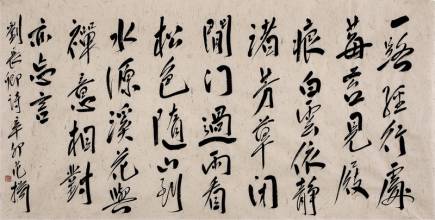 一路經行處
莓苔見履
痕白雲依靜
渚芳草閉
閒门過雨看
松色隨山到
水源溪花與
禪意相對
亦忘言
劉長卿詩辛卯